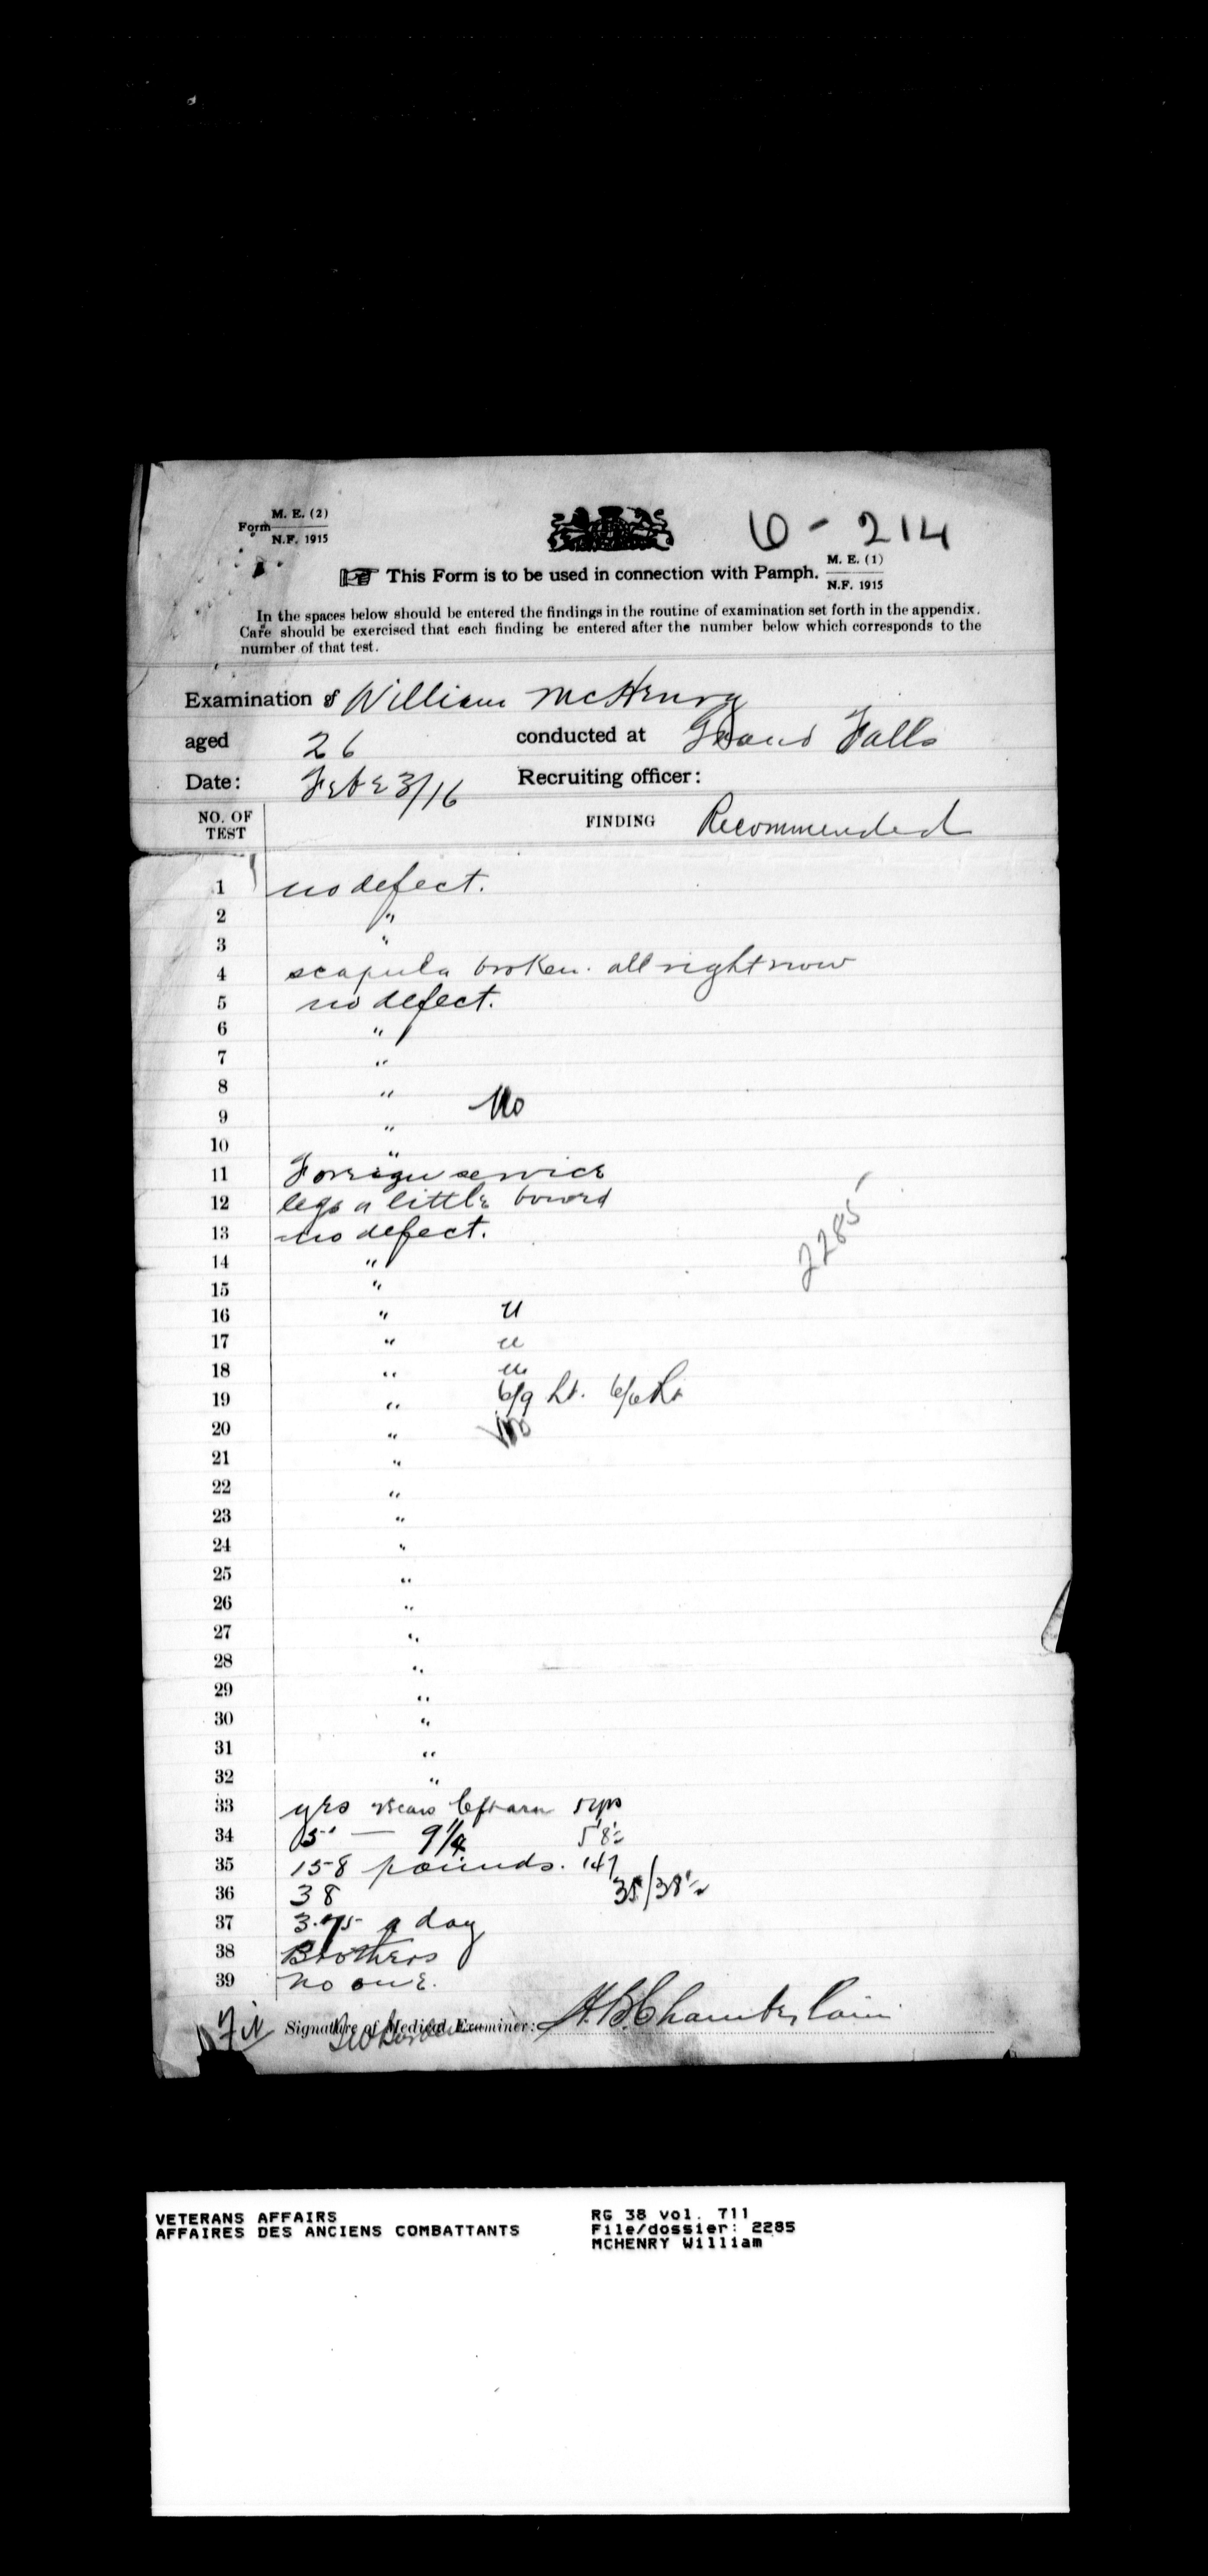 M. E. (2)
Form
N.F. 1915
6 - 214
☞ This Form is to be used in connection with Pamph. M. E. (1)
N.F. 1915
In the spaces below should be entered the findings in the routine of examination set forth in the appendix.
Care should be exercised that each finding be entered after the number below which corresponds to the
number of that test.
Examination of William McHenry
aged 26 conducted at Grand Falls
Date: Feb 23/16 Recruiting officer:
NO. OF TEST FINDING Recommended
1 no defect.
2 "
3 "
4 scapula broken. all right now
5 no defect.
6 "
7 "
8 "
9 " No
10 "
11 Foreign service
12 legs a little bowed
13 no defect.
2285
14 "
15 "
16 " u
17 " u
18 " u
19 " 6/9 Lt. 6/6 Rt
20 "
21 "
22 "
23 "
24 "
25 "
26 "
27 "
28 "
29 "
30 "
31 "
32 "
33 yrs left arm 5 yrs
34 5' — 9 1/4 5'8½
35 158 pounds. 147
36 38 35/38½
37 3.75 a day
38 Brothers
39 no one.
Fit Signature of Medical Examiner: H. B. Chamberlain
VETERANS AFFAIRS
AFFAIRES DES ANCIENS COMBATTANTS
RG 38 vol. 711
File/dossier: 2285
MCHENRY William